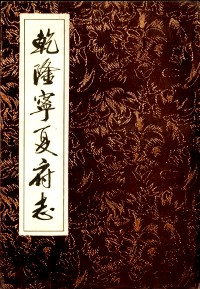 乾隆寧夏府志